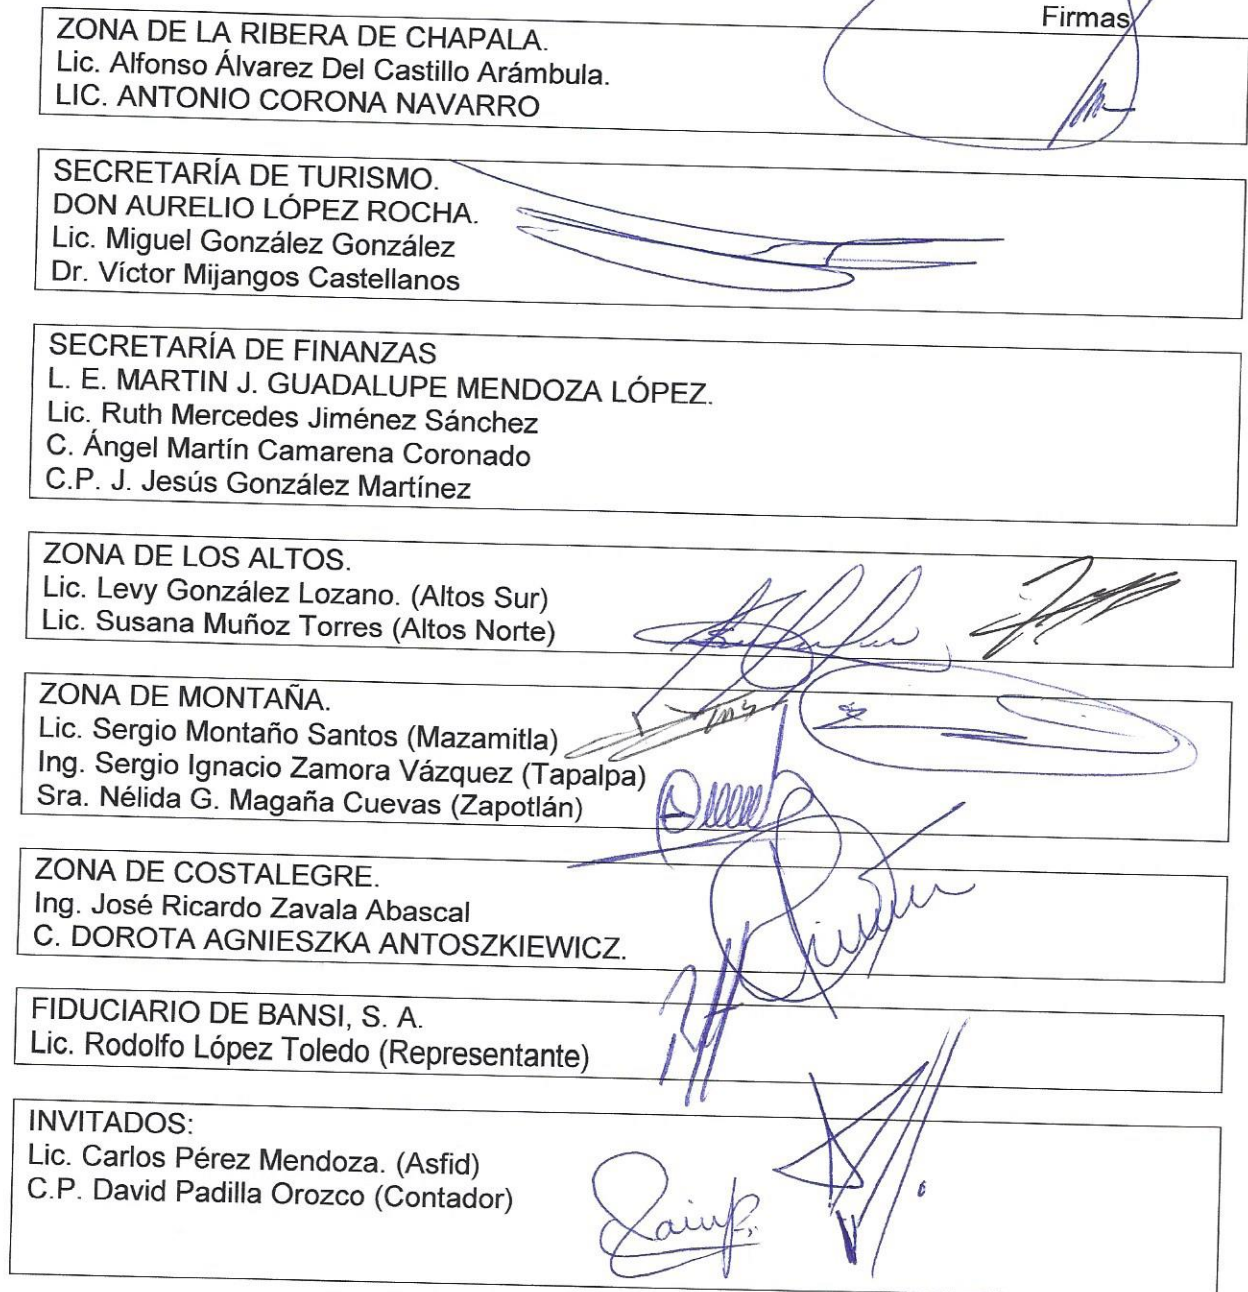 Firmas
ZONA DE LA RIBERA DE CHAPALA.
Lic. Alfonso Álvarez Del Castillo Arámbula.
LIC. ANTONIO CORONA NAVARRO
SECRETARÍA DE TURISMO.
DON AURELIO LÓPEZ ROCHA.
Lic. Miguel González González
Dr. Víctor Mijangos Castellanos
SECRETARÍA DE FINANZAS
L. E. MARTIN J. GUADALUPE MENDOZA LÓPEZ.
Lic. Ruth Mercedes Jiménez Sánchez
C. Ángel Martín Camarena Coronado
C.P. J. Jesús González Martínez
ZONA DE LOS ALTOS.
Lic. Levy González Lozano. (Altos Sur)
Lic. Susana Muñoz Torres (Altos Norte)
ZONA DE MONTAÑA.
Lic. Sergio Montaño Santos (Mazamitla)
Ing. Sergio Ignacio Zamora Vázquez (Tapalpa)
Sra. Nélida G. Magaña Cuevas (Zapotlán)
ZONA DE COSTALEGRE.
Ing. José Ricardo Zavala Abascal
C. DOROTA AGNIESZKA ANTOSZKIEWICZ.
FIDUCIARIO DE BANSI, S. A.
Lic. Rodolfo López Toledo (Representante)
INVITADOS:
Lic. Carlos Pérez Mendoza. (Asfid)
C.P. David Padilla Orozco (Contador)